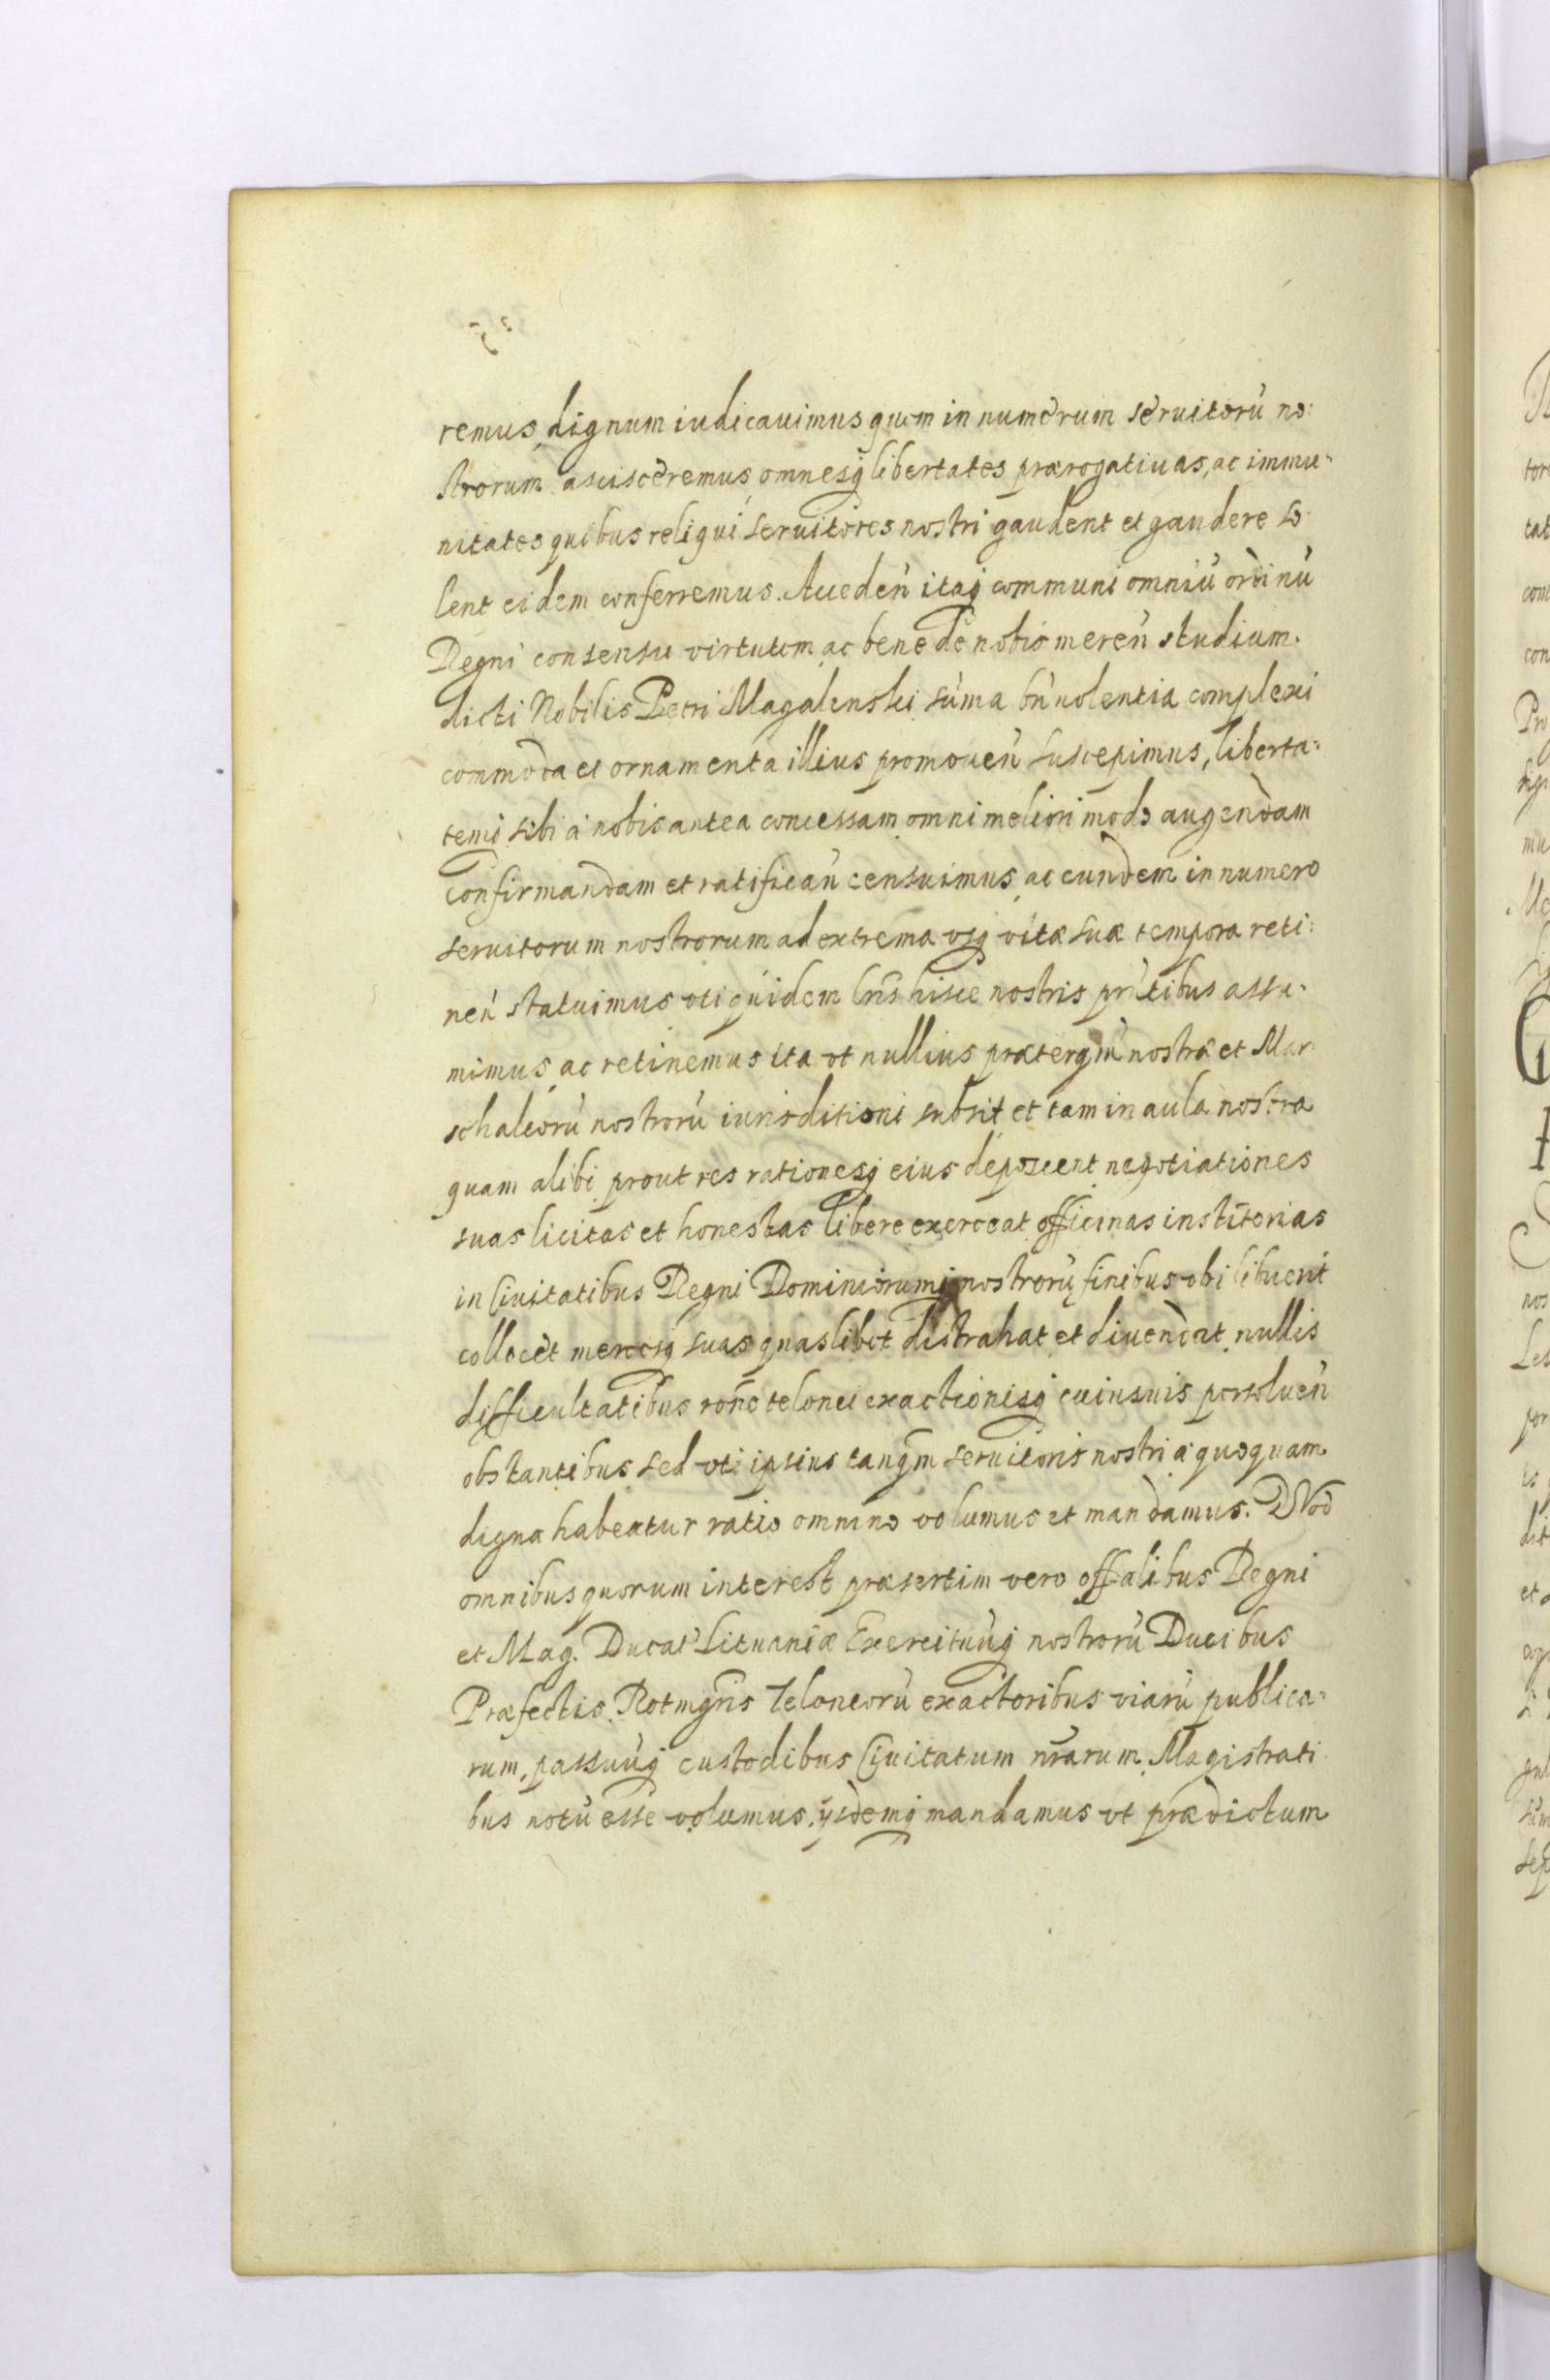 remus, dignum iudicauimus quem in numerum seruitorũ no:
strorum ascisceremus, omnesq libertates prærogatiuas, ac immu:
nitates quibus reliqui seruitores nostri gaudent et gaudere so:
lent eidem conferremus. Acceden̄ itaq communi omniũ ordinũ
Regni consensu virtutem ac bene de nobis meren̄ studium.
dicti Nobilis Petri Magalenski sũma bn̄uolentia complexi
commoda et ornamenta illius promouen̄ suscepimus, liberta:
temq sibi a nobis antea concessam omni meliori modo augendam
confirmandam et ratifican̄ censuimus, ac eundem in numero
seruitorum nostrorum ad extrema vsq vitæ suæ tempora reti:
nen̄ statuimus vti quidem lr̄is hisce nostris pr̄ntibus assu:
mimus, ac retinemus ita vt nullius præterqm̄ nostræ et Mar
schalcorũ nostrorũ iurisditioni subsit et tam in aula nostra
quam alibi prout res rationesq eius deposcent negotiationes
suas licitas et honestas libere exerceat officinas institorias
in Ciuitatibus Regni Dominiorumq nostrorũ finibus vbi libuerit
collocet mercesq suas quaslibet distrahat et diuendat, nullis
difficultatibus rōne telonei exactionisq cuiusuis persoluen̄
obstantibus sed vti ipsius tanqm̄ seruitoris nostri a quoquam
digna habeatur ratio omnino volumus et mandamus. QVod
omnibus quorum interest præsertim vero offalibus Regni
et Mag. Ducat' Lituaniæ Exercituũq nostrorũ Ducibus
Præfectis, Rotmgr̄is Teloneorũ exactoribus viarũ publica:
rum, passuũq custodibus Ciuitatum nr̄arum Magistrati
bus notũ esse volumus, ijsdemq mandamus vt prædictum